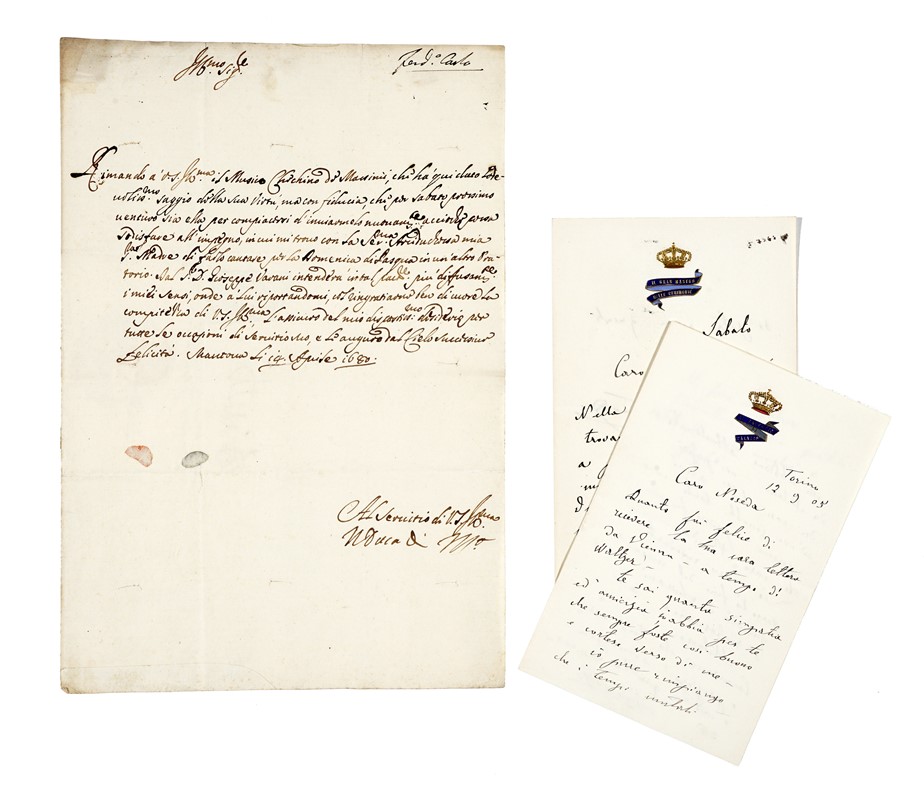 Ill.mo Sig.re
Ferd.o Carlo
Rimando a V.S. Ill.ma il Musico Checchino de Massimi, che hà qui dato lode-
voliss.mo saggio della sua Virtù, ma con fiducia, che per Sabato prossimo
venturo sia ella per compiacersi d'inviarmelo
sodisfare all'impegno, in cui mi trovo con la Ser.ma Arciduchessa mia
Sig.ra Madre di farlo cantare per la Domenica di Pasqua in un'altro Ora-
torio. Dal S.r D. Giuseppe Varani intenderà in tal più diffusam.te
i miei sensi, onde a Lui riportandomi, et ringratiarne ben di cuore la
compitezza di V.S. Ill.ma l'assicuro del mio desiderio per
tutte le occasioni di servirlo, e le auguro dal Cielo
felicità. Mantova li 14 Aprile 1680.
Al Servitio di V.S. Ill.ma
Il Duca di
Sabato
Caro
Nella
trova
a
Torino
12 9 05
Caro Noseda
Quanto fui felice di
ricevere la tua cara lettera
da Vienna — a tempo di
Waltzer! —
Tu sai quanta simpatia
ed amicizia io abbia per te
che sempre fosti così buono
e cortese verso di me —
io pure rimpiango
che i tempi mutati